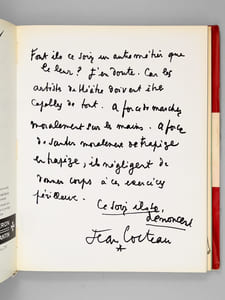 Font ils ce soir un autre métier que
le leur ? J'en doute. Car les
artistes de théâtre doivent être
capables de tout. A force de marcher
moralement sur les mains. A force
de sauter moralement de trapèze
en trapèze, ils négligent de
donner corps à ces exercices
périlleux.
Ce soir ils le
démontrent
Jean Cocteau